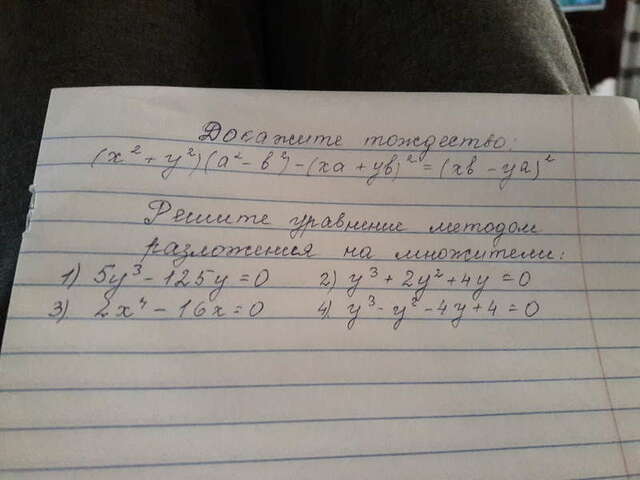 Докажите тождество:
(x² + y²)(a² - b²) - (xa + yb)² = (xb - ya)²
Решите уравнение методом
разложения на множители:
1) 5y³ - 125y = 0 2) y³ + 2y² + 4y = 0
3) 2x⁴ - 16x = 0 4) y³ - y² - 4y + 4 = 0